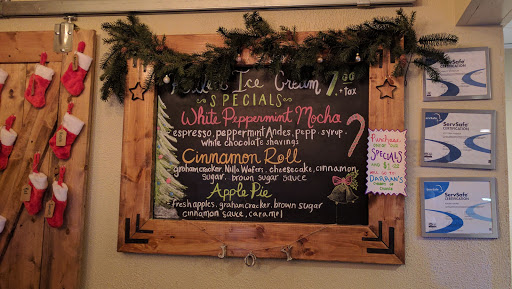 Rolled Ice Cream 7.00
+ tax
SPECIALS
White Peppermint Mocha
espresso, peppermint Andes, pepp. syrup,
white chocolate shavings
Cinnamon Roll
graham cracker, Nilla Wafers, cheesecake, cinnamon
sugar, brown sugar sauce
Apple Pie
fresh apples, graham cracker, brown sugar
cinnamon sauce, caramel
Purchase
one of our
SPECIALS
and $1.00
will go to
DARRAN'S
JOY
ServSafe
CERTIFICATION
ServSafe
CERTIFICATION
ServSafe
CERTIFICATION